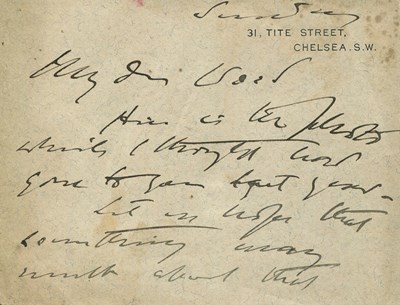 Sunday
31, TITE STREET,
CHELSEA. S.W.
My dear Ward
Here is the photo
which I thought had
gone to you last year.
Let us hope that
something may
result about that